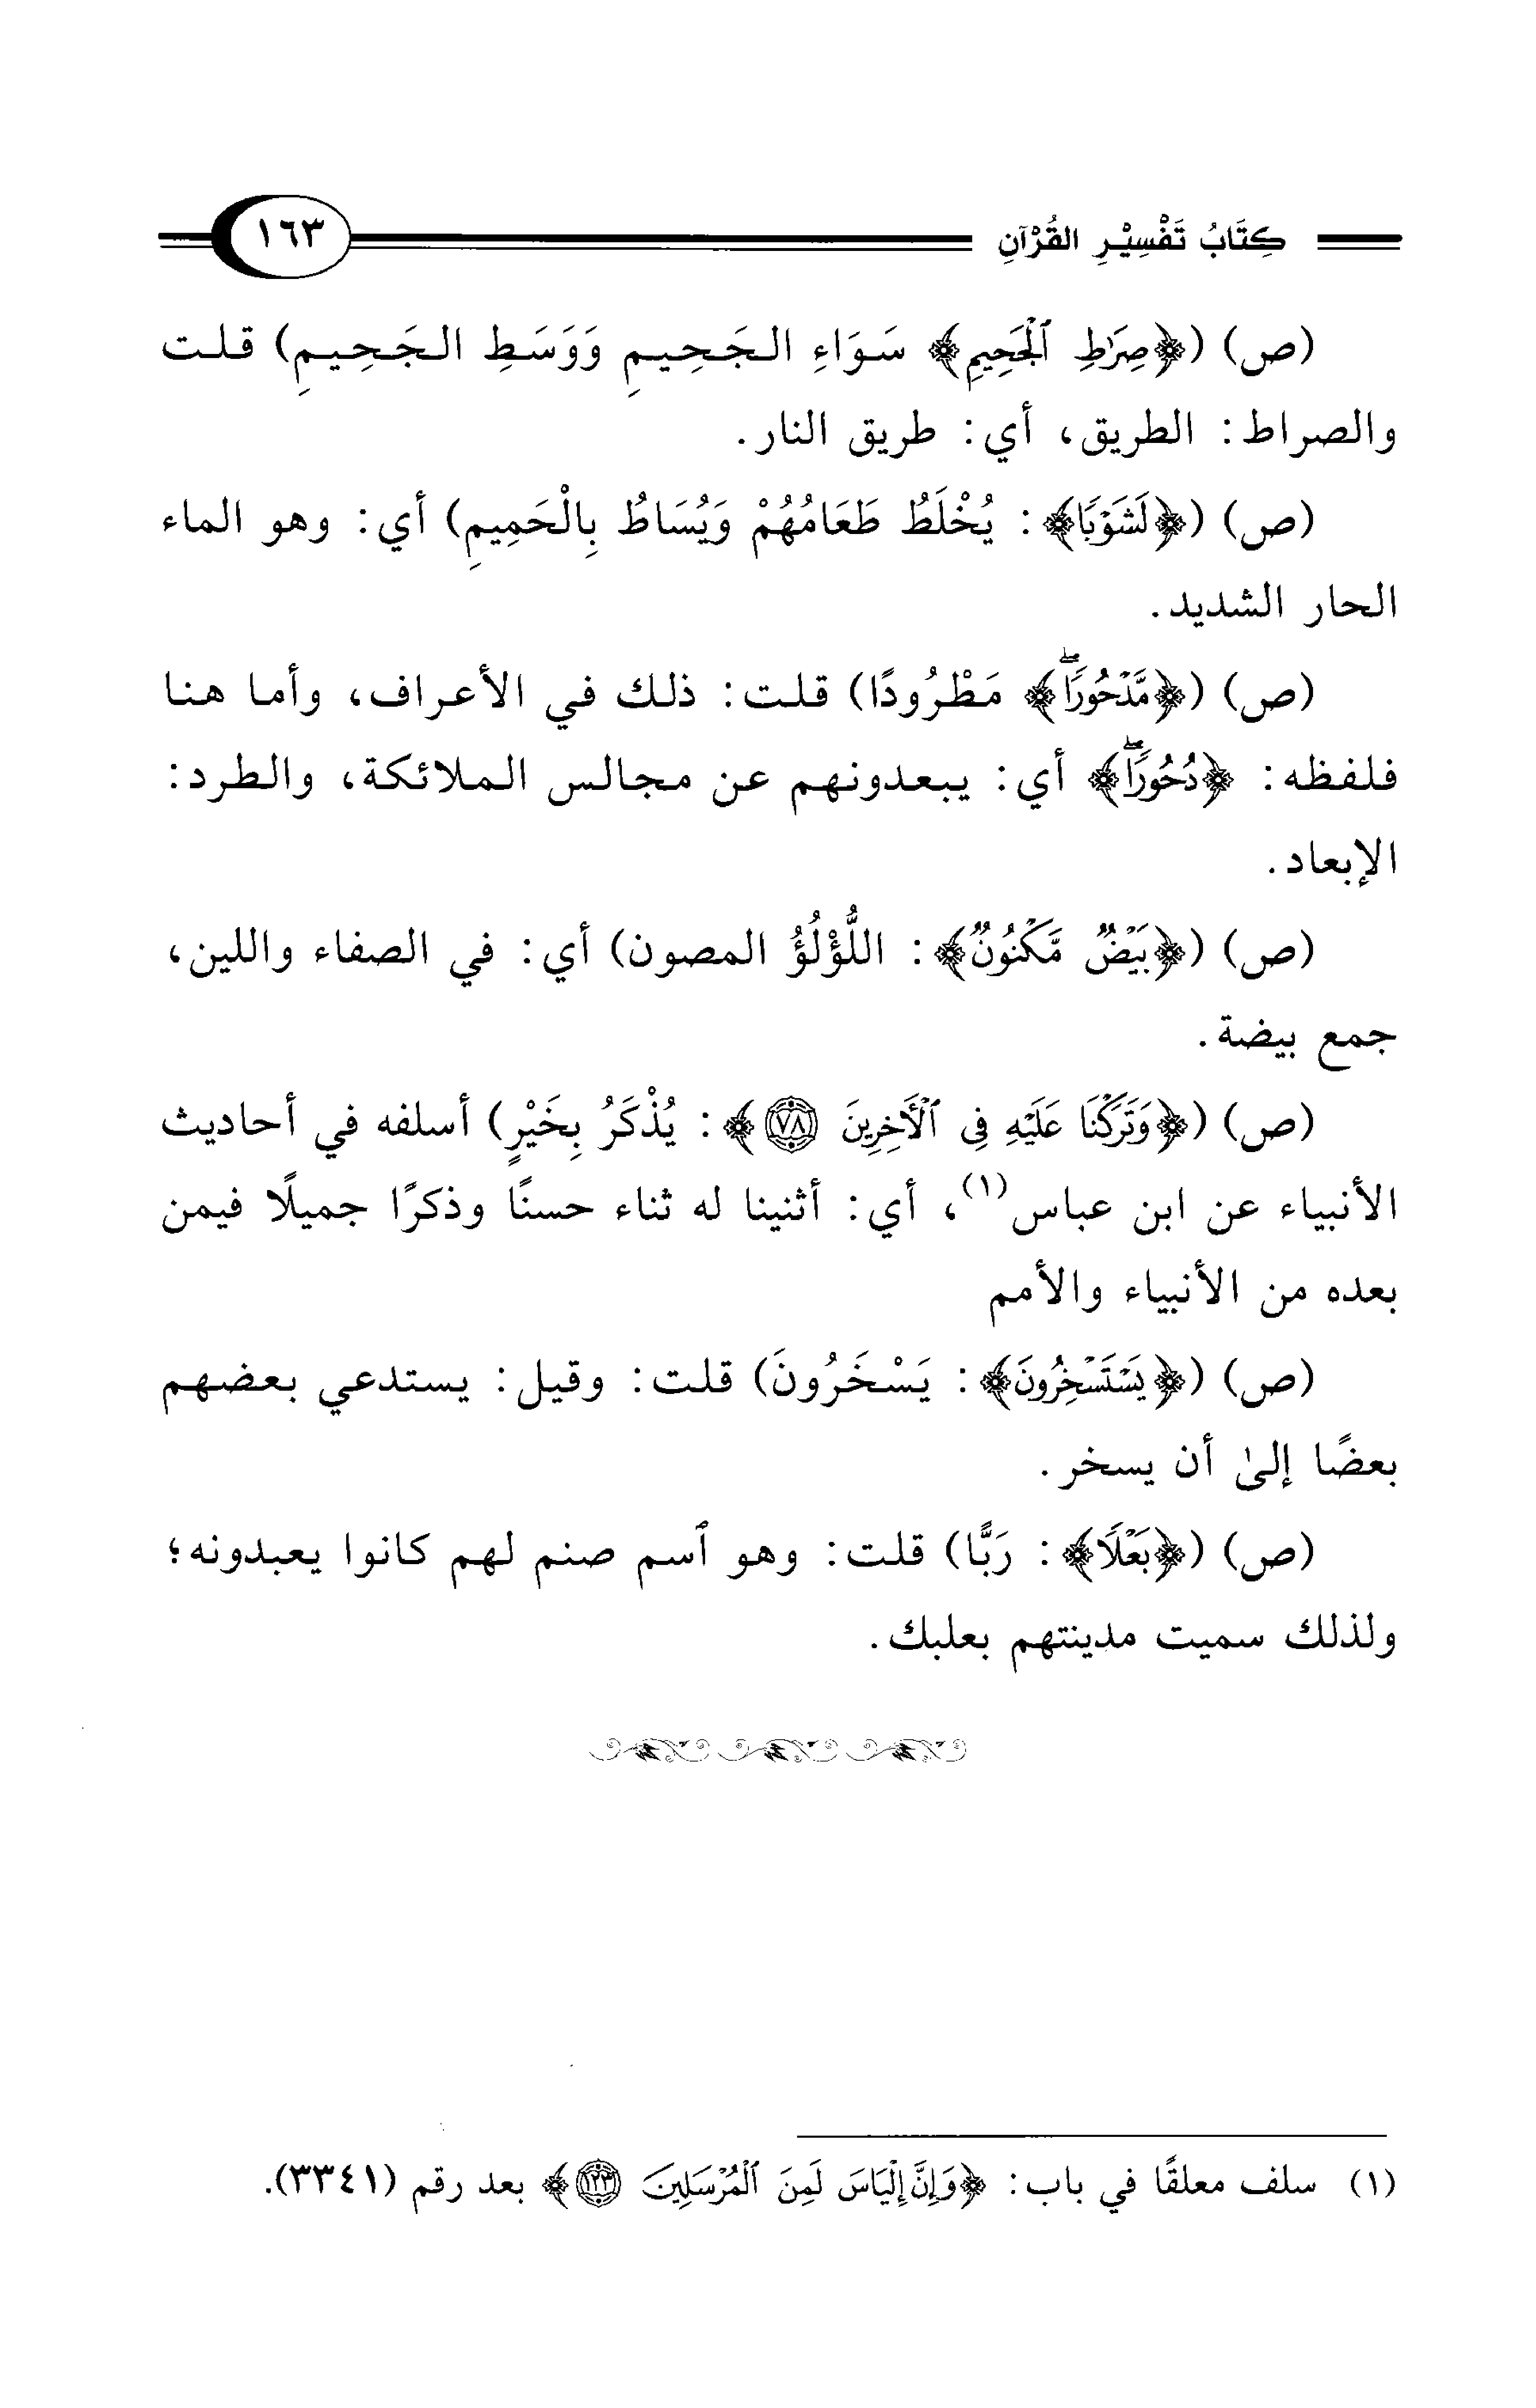 كِتَابُ تَفْسِيْرِ القُرْآنِ ١٦٣
(ص) (﴿صِرَٰطِ ٱلْجَحِيمِ﴾ سَوَاءِ الجَحِيمِ وَوَسَطِ الجَحِيمِ) قلت
والصراط: الطريق، أي: طريق النار.
(ص) (﴿لَشَوْبًا﴾: يُخْلَطُ طَعَامُهُمْ وَيُسَاطُ بِالْحَمِيمِ) أي: وهو الماء
الحار الشديد.
(ص) (﴿مَّدْحُورًاۖ﴾ مَطْرُودًا) قلت: ذلك في الأعراف، وأما هنا
فلفظه: ﴿دُحُورًاۖ﴾ أي: يبعدونهم عن مجالس الملائكة، والطرد:
الإبعاد.
(ص) (﴿بَيْضٌ مَّكْنُونٌ﴾: اللُّؤْلُؤُ المصون) أي: في الصفاء واللين،
جمع بيضة.
(ص) (﴿وَتَرَكْنَا عَلَيْهِ فِى ٱلْأَخِرِينَ ٧٨﴾: يُذْكَرُ بِخَيْرٍ) أسلفه في أحاديث
الأنبياء عن ابن عباس(١)، أي: أثنينا له ثناء حسنًا وذكرًا جميلًا فيمن
بعده من الأنبياء والأمم
(ص) (﴿يَسْتَسْخِرُونَ﴾: يَسْخَرُونَ) قلت: وقيل: يستدعي بعضهم
بعضًا إلىٰ أن يسخر.
(ص) (﴿بَعْلًا﴾: رَبًّا) قلت: وهو ٱسم صنم لهم كانوا يعبدونه؛
ولذلك سميت مدينتهم بعلبك.
(١) سلف معلقًا في باب: ﴿وَإِنَّ إِلْيَاسَ لَمِنَ ٱلْمُرْسَلِينَ ١٢٣﴾ بعد رقم (٣٣٤١).